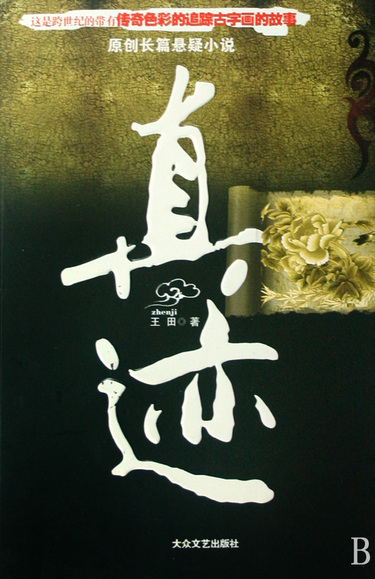 这是跨世纪的带有传奇色彩的追踪古字画的故事
原创长篇悬疑小说
真迹
zhenji
王田◎著
大众文艺出版社
B